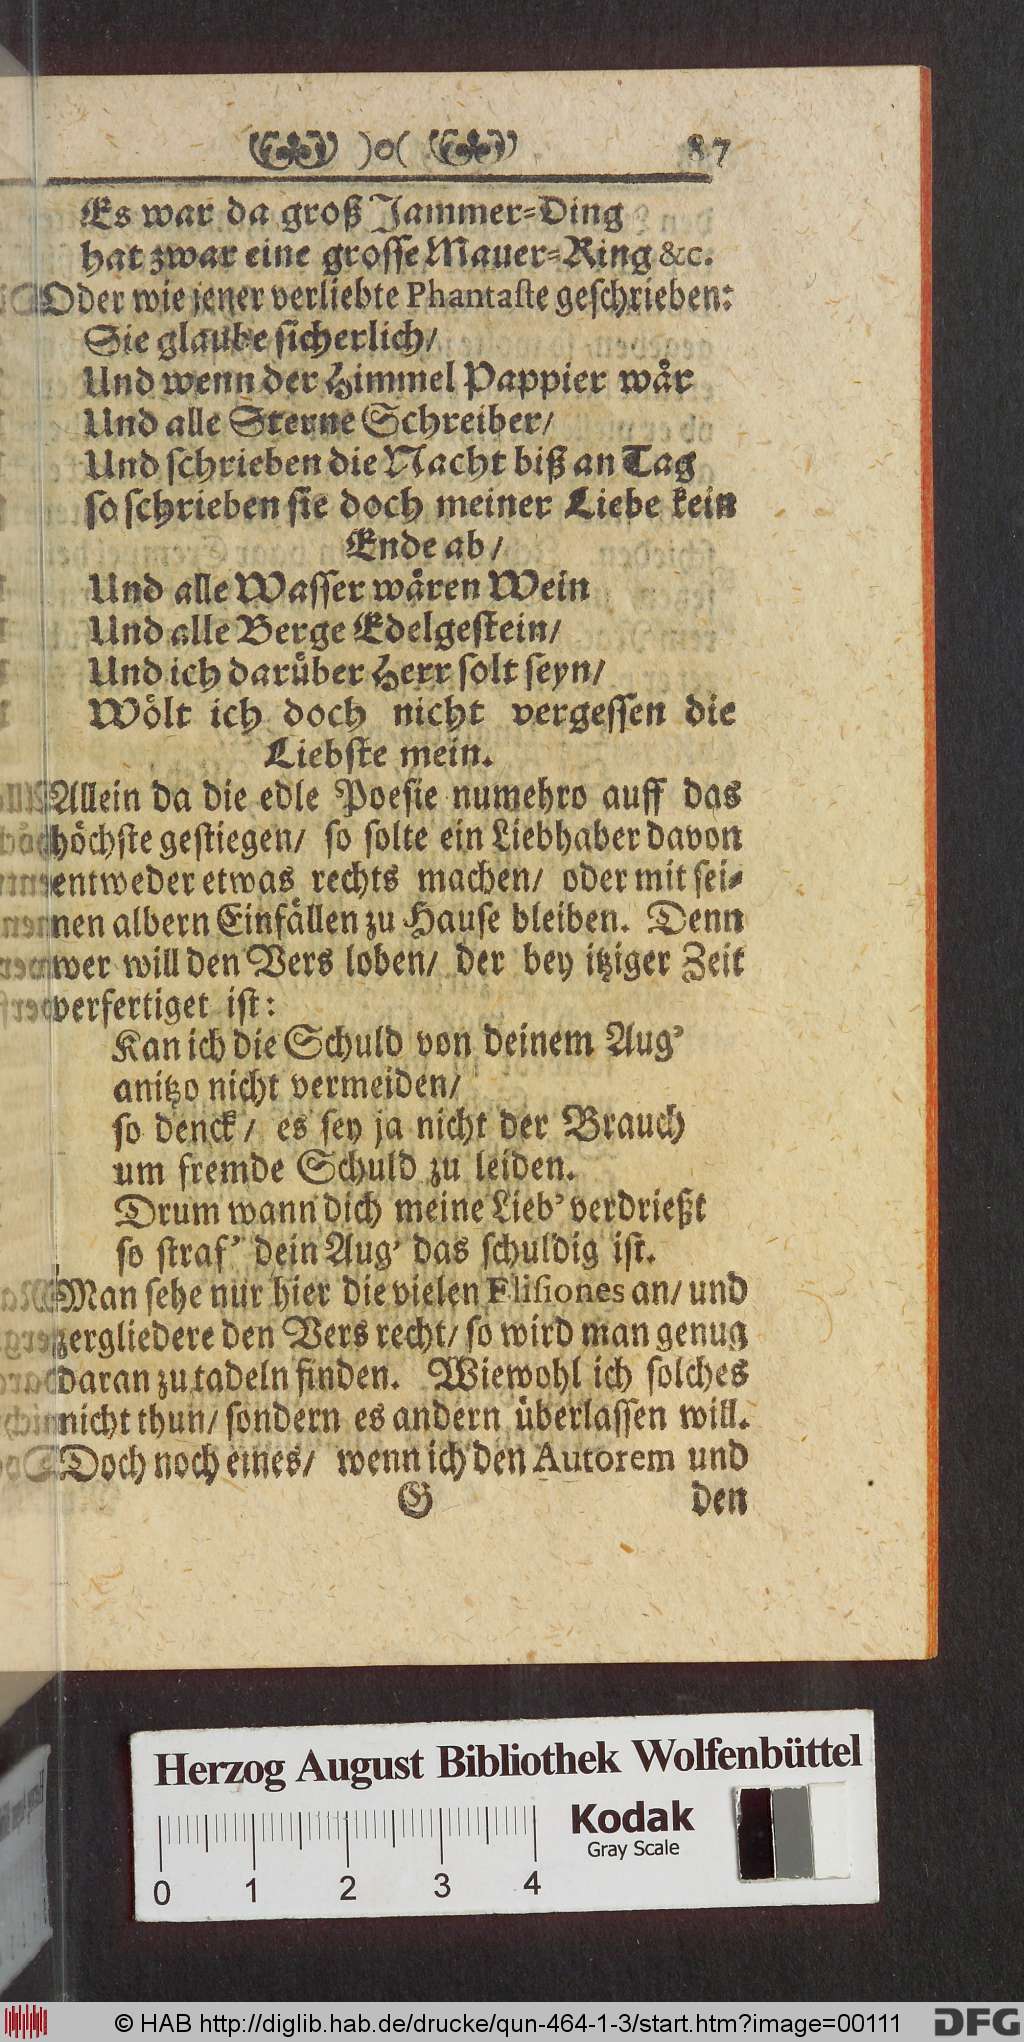 )o( 87
Es war da groß Jammer-Ding
hat zwar eine grosse Mauer-Ring &c.
Oder wie jener verliebte Phantaste geschrieben:
Sie glaube sicherlich/
Und wenn der Himmel Pappier wår
Und alle Sterne Schreiber/
Und schrieben die Nacht biß an Tag
so schrieben sie doch meiner Liebe kein
Ende ab/
Und alle Wasser wåren Wein
Und alle Berge Edelgestein/
Und ich darůber Herr solt seyn/
Wölt ich doch nicht vergessen die
Liebste mein.
Allein da die edle Poesie numehro auff das
höchste gestiegen/ so solte ein Liebhaber davon
entweder etwas rechts machen/ oder mit sei-
nen albern Einfällen zu Hause bleiben. Denn
wer will den Vers loben/ der bey itziger Zeit
verfertiget ist:
Kan ich die Schuld von deinem Aug'
anitzo nicht vermeiden/
so denck/ es sey ja nicht der Brauch
um fremde Schuld zu leiden.
Drum wann dich meine Lieb' verdrießt
so straf' dein Aug' das schuldig ist.
Man sehe nur hier die vielen Elisiones an/ und
zergliedere den Vers recht/ so wird man genug
daran zu tadeln finden. Wiewohl ich solches
nicht thun/ sondern es andern überlassen will.
Doch noch eines/ wenn ich den Autorem und
G den
Herzog August Bibliothek Wolfenbüttel
Kodak
Gray Scale
0 1 2 3 4
© HAB http://diglib.hab.de/drucke/qun-464-1-3/start.htm?image=00111
DFG